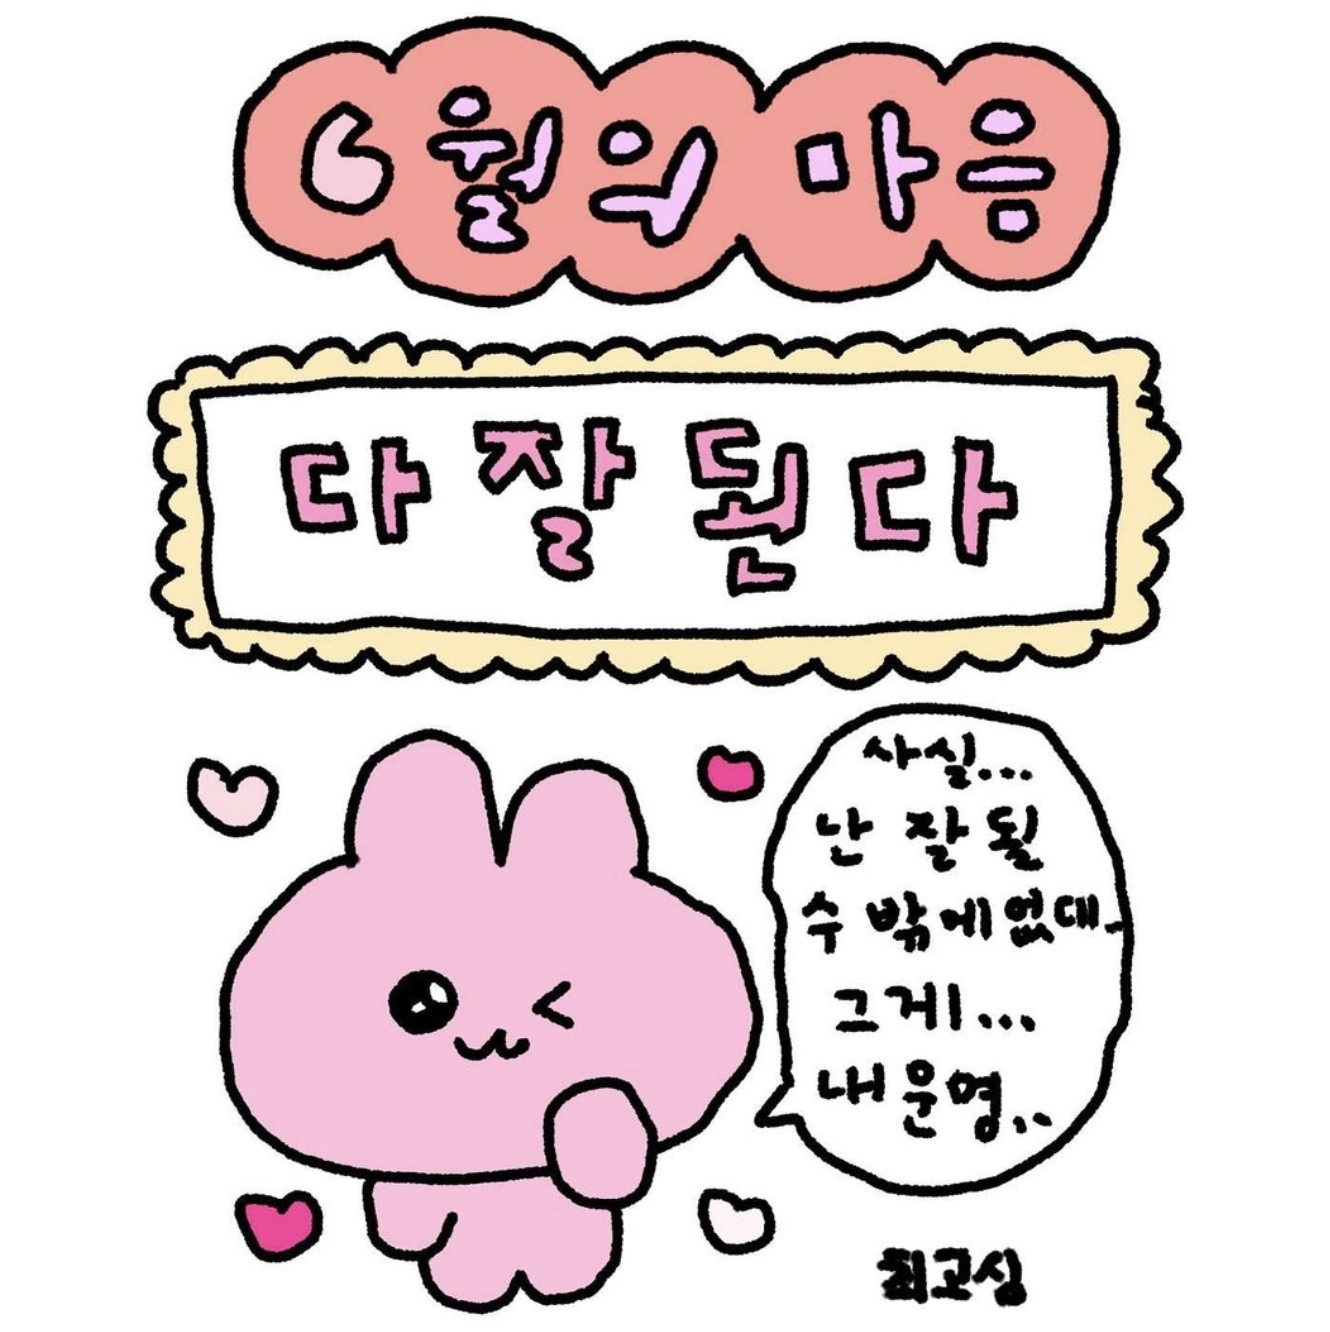 6월의 마음
다 잘 된다
사실...
난 잘 될
수 밖에 없대.
그게...
내 운명..
최고심